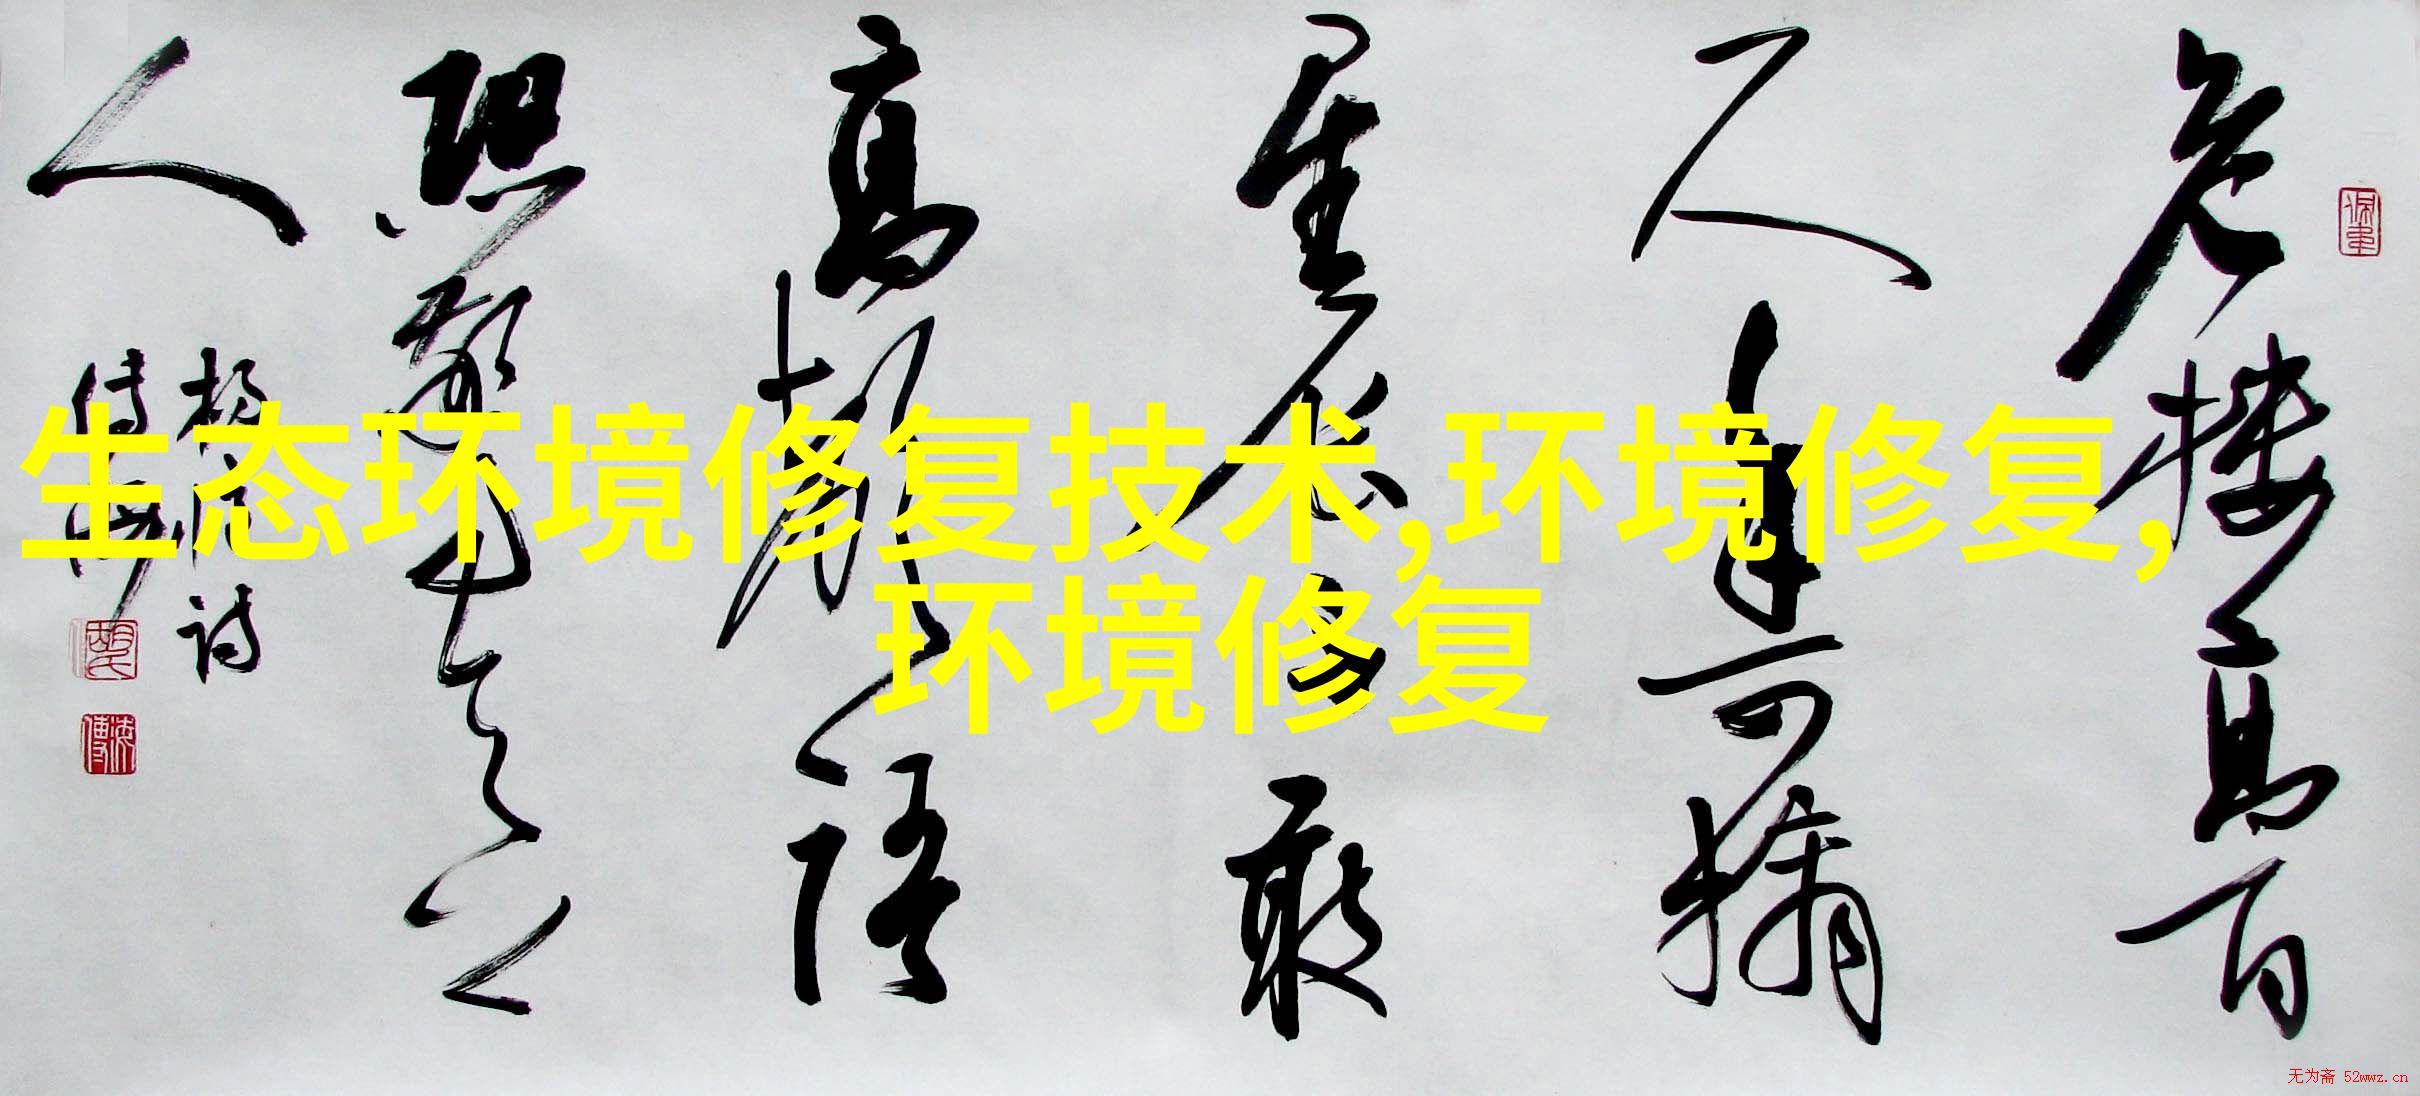 生态环境修复技术,环境修复,
环境修复
危楼高百
尺手可摘
星辰不敢
高声语
恐惊天上
人
无为斋 52wwz.cn